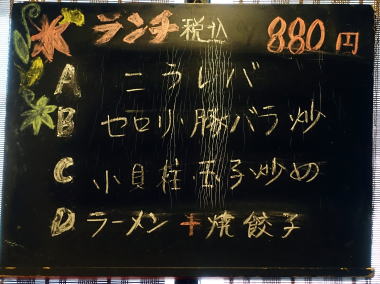 ランチ 税込 880円
A ニラレバ
B セロリ豚バラ炒
C 小貝柱玉子炒め
D ラーメン+焼餃子